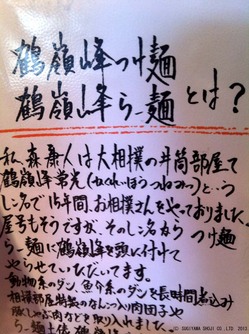 鶴嶺峰つけ麺
鶴嶺峰らー麺とは?
私、森康人は大相撲の井筒部屋で
鶴嶺峰常光(かくれいほうつねみつ)という
しこ名で15年間、お相撲さんをやっておりました。
屋号もそうですが、そのしこ名からつけ麺
らー麺に鶴嶺峰を頭に付けて
やらせていただいてます。
動物系のダシ、魚介系のダシを長時間煮込み
相撲部屋特製のなんこつ入り肉団子や
などを取り入れました。
(C) SUGIYAMA SHOJI CO.,LTD. 2012